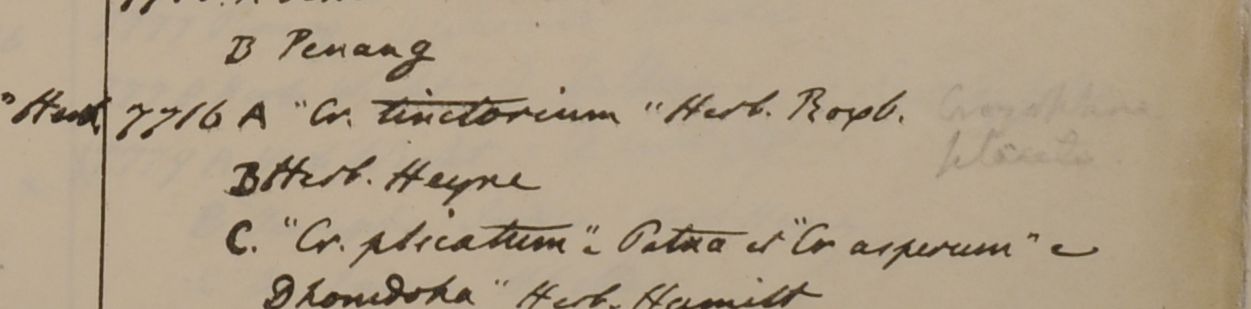 B Penang
" Herb. 7716 A "Cr. tinctorium" Herb. Roxb. Crozophora
plicata.
B Herb. Heyne
C. "Cr. plicatum" e Patna et "Cr asperum" e
Dhomdoha" Herb. Hamilt